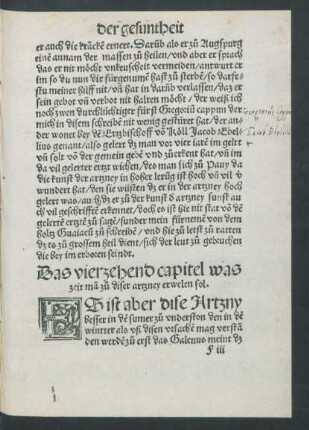 der gesuntheit
er auch die krücke ernert. Darūb als er zů Augspurg
eine annam der massen zů heilen, vnd aber er sprach
das er nit möcht vnkeuscheit vermeiden, antwurt er
im so du nun dir fürgenume hast zů sterbē, so darfe
stu meiner hilff nit, vn̄ hat in darūb verlassen, daz er
sein gebot vn̄ verbot nit halten möcht, der weiß ich
noch zwen durchlüchtiger fürst Gregoriū cappm der
mich in disem schreibē nit wenig gestüret hat, der an
der wonet bey dē Ertzbischoff vō Köll Jacob Ebel
lius genant, also gelert dz man vor vier iarē im gelt
vn̄ solt vō der gemein gebē vnd zůerkent hat, vn̄ im
da vil gelerter ertzt wichen, des man zů Kauff dar ny
die kunst der artzny in hoher lerūg ist hoch vn̄ vil v
wundert hat, den sie wüsten dz er in der artzney hoch
gelert was, auch dz er zů der kunst d artzney sunst au
ch vil geschrifftē erkenner, doch es ist hie nit stat vō dē
gelertē ertztē zů sagē, sunder mein fürnemē von dem
holtz Guaiacū zů schreibē, vnd hie zů letst zů ratten
dz es zů grossem heil dient, sich der leut zů gebruchen
die bey im erboten seindt.
Das vierzehend capitel was
zeit mā zů diser artzney erwelen sol.
ES ist aber dise Artzny
besser in dē sumer zů vnderston den in dē
winter als vß disen vrsachē mag verstā
den werdē zů erst das Galenus meint dz
F iii